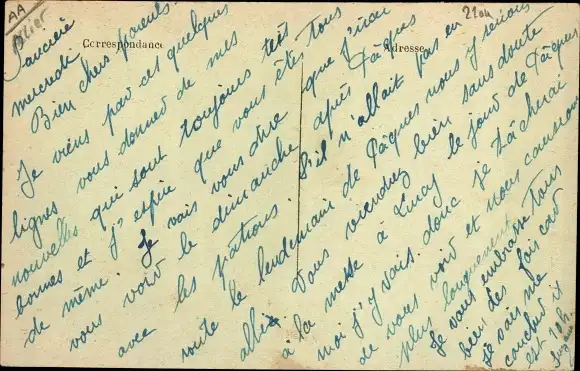 AA
Allier
22 04
Correspondance
Adresse
Saucivié
mercredi
Bien chers parents.
Je viens par ces quelques
lignes vous donner de mes
nouvelles qui sont toujours très
bonnes et j'espère que vous êtes tous
de même. Je vais vous dire que j'irai
vous voir le dimanche après Pâques
avec les patrons. S'il n'allait pas en
route le lendemain de Pâques nous y serions
allé. Vous viendrez bien sans doute
à la messe à Lucay le jour de Pâques
moi j'y vais. donc je tâcherai
de vous voir et nous causerons
plus longuement
Je vous embrasse tous
bien des fois car
je vais me
coucher il
est 10h.